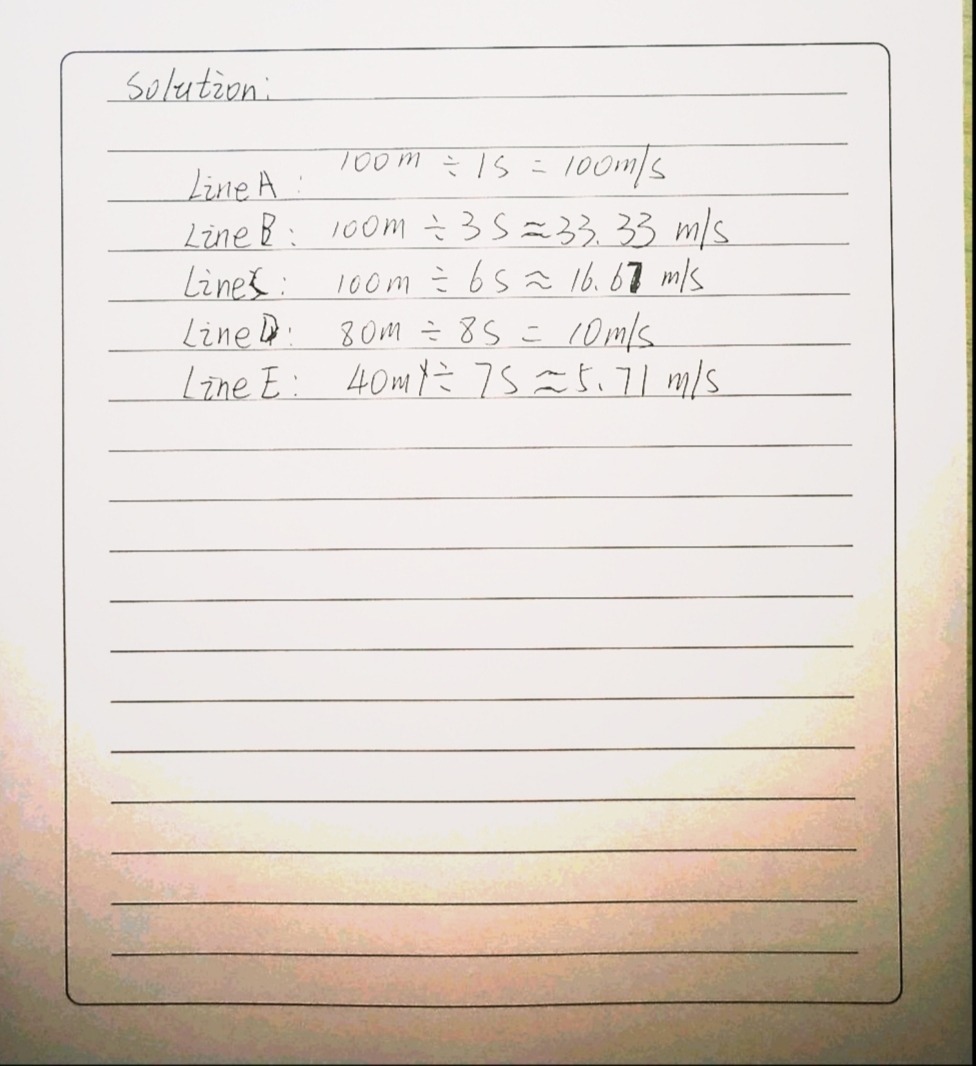 Solution:
Line A: 100m ÷ 1s = 100m/s
Line B: 100m ÷ 3s ≈ 33.33 m/s
Line C: 100m ÷ 6s ≈ 16.67 m/s
Line D: 80m ÷ 8s = 10m/s
Line E: 40m ÷ 7s ≈ 5.71 m/s